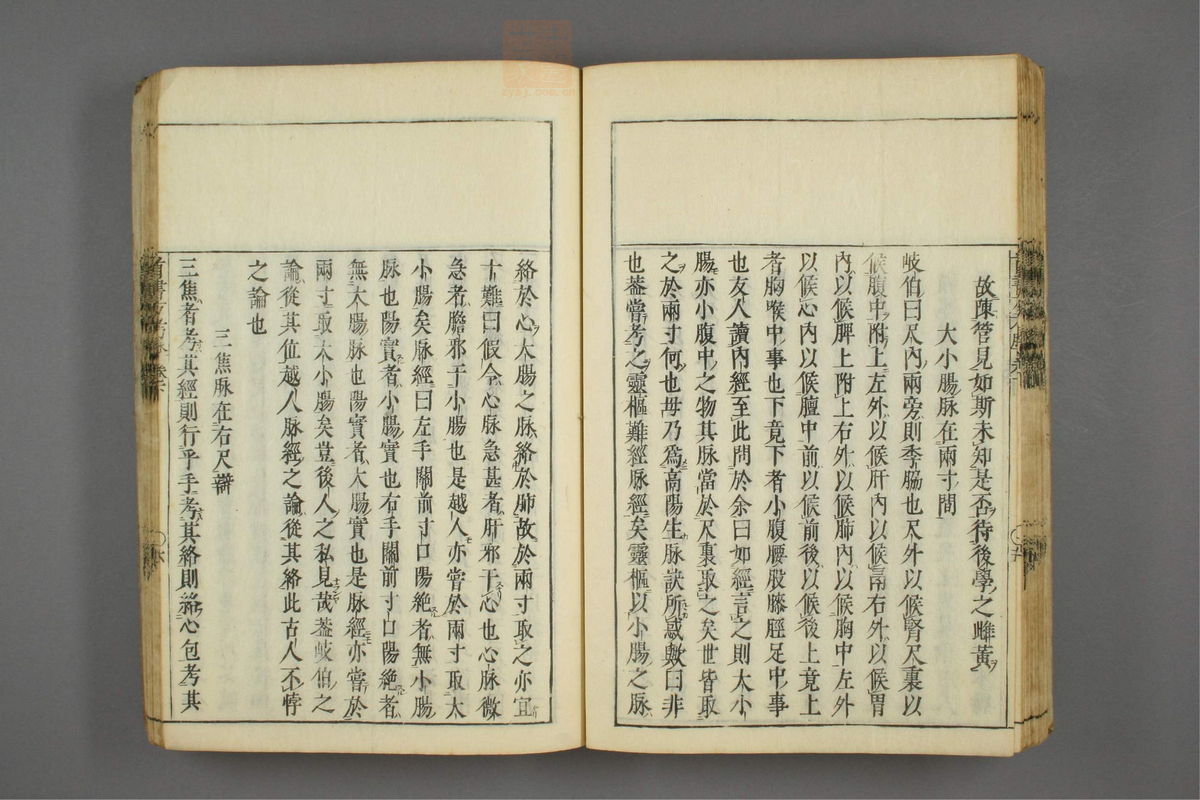 故陳管見如斯未知是否待後學之雌黃
大小腸脉在兩寸間
岐伯曰尺內兩旁則季脇也尺外以候腎尺裏以
候腹中附上左外以候肝內以候鬲右外以候胃
內以候脾上附上右外以候肺內以候胸中左外
以候心內以候膻中前以候前後以候後上竟上
者胸喉中事也下竟下者小腹腰股膝脛足中事
也友人讀內經至此問於余曰如經言之則大小
腸亦小腹中之物其脉當於尺裏取之矣世皆取
之於兩寸何也毋乃爲高陽生脉訣所惑歟曰非
也葢嘗考之靈樞難經脉經矣靈樞以小腸之脉
絡於心大腸之脉絡於肺故於兩寸取之亦宜
十難曰假令心脉急甚者肝邪干心也心脉微
急者膽邪干小腸也是越人亦嘗於兩寸取大
小腸矣脉經曰左手關前寸口陽絶者無小腸
脉也陽實者小腸實也右手關前寸口陽絶者
無大腸脉也陽實者大腸實也是脉經亦嘗於
兩寸取大小腸矣豈後人之私見哉葢岐伯之
論從其位越人脉經之論從其絡此古人不悖
之論也
三焦脉在右尺辯
三焦者考其經則行乎手考其絡則絡心包考其